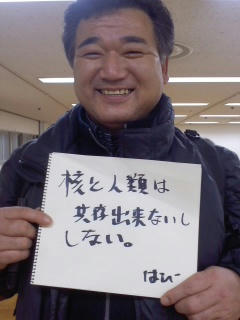 核と人類は
共存出来ないし
しない。
はひー